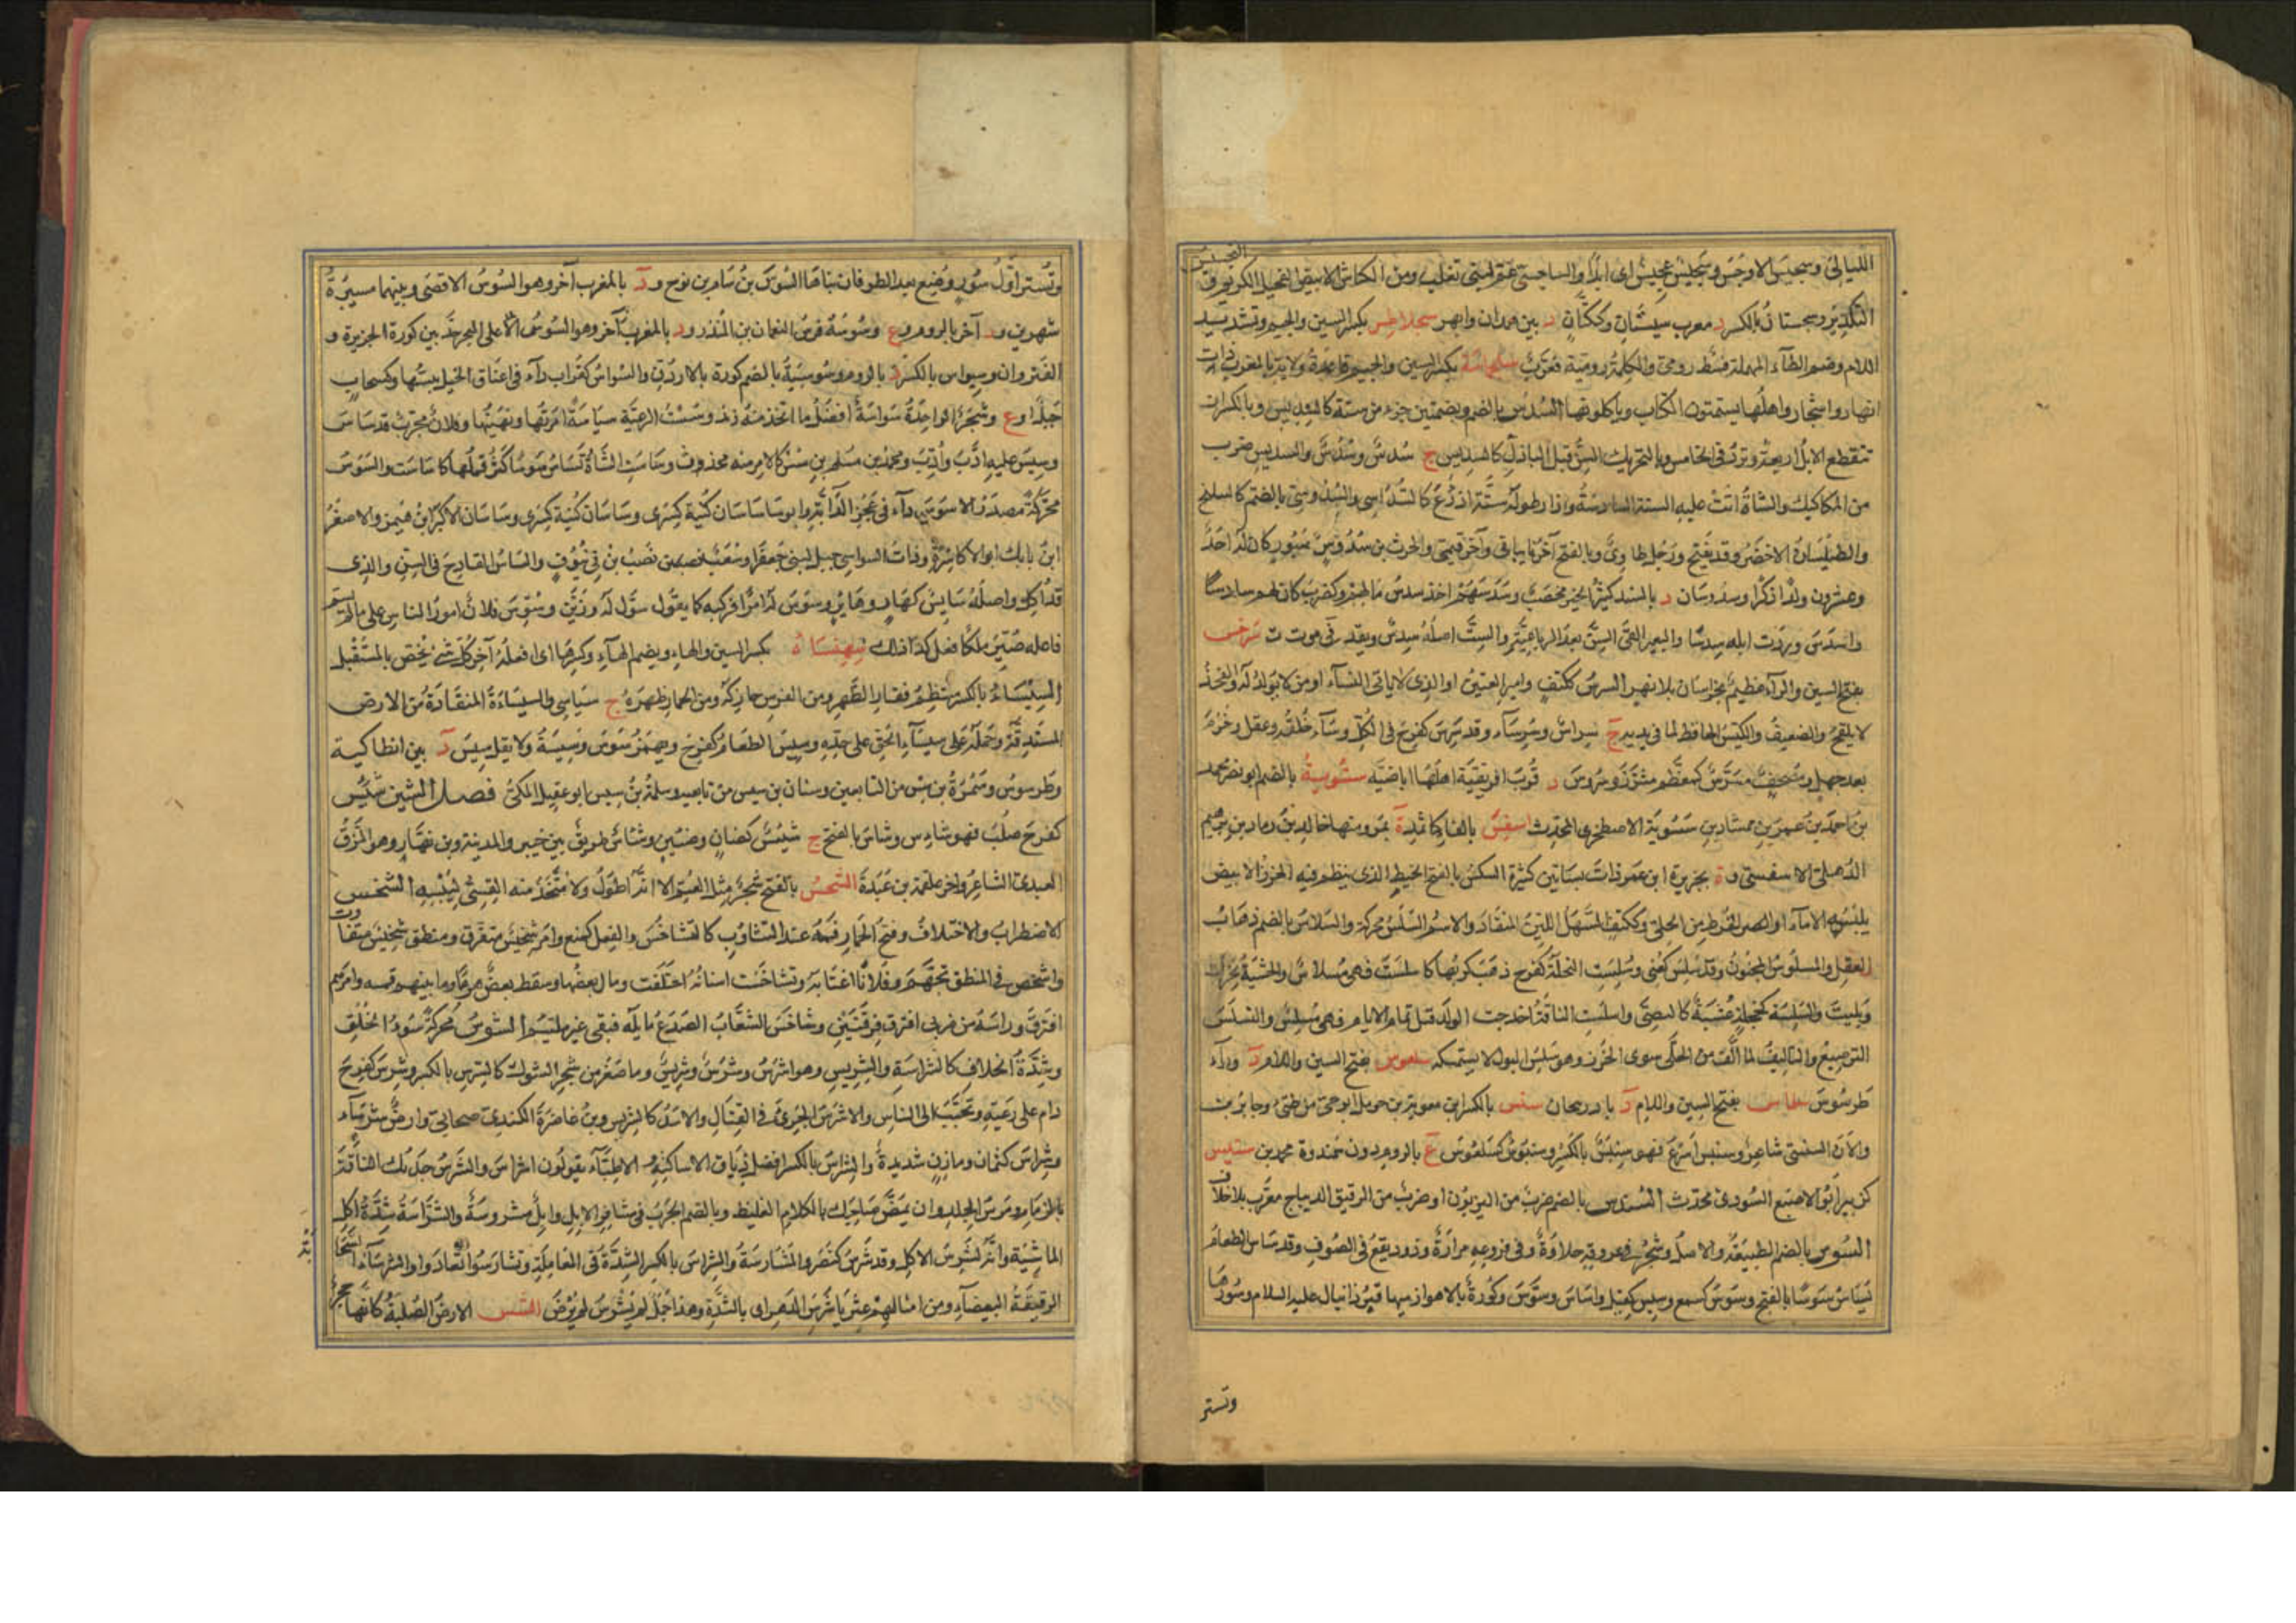 الليالي وسجيس الاوجس وسجيس عجيس اى ابدا والساجسى غنم لبنى تغلب ومن الكباش الابيض الفحيل الكريم و
التكدير وسجستان بالكسر د معرب سيستان وككتان د بين همدان وابهر سجلاطس بكسر السين والجيم وتشديد
اللام وضم الطاء المهملة نمط رومى والكلمة رومية فعرب سجلماسة بكسر السين والجيم قاعدة ولاية بالمغرب ذات
انهار واشجار واهلها يستمنون الكلاب وياكلونها السدس بالضم وبضمتين جزء من ستة كالسديس وبالكسر ان
تنقطع الابل اربعة وترد فى الخامس وبالتحريك السن قبل البازل كالسديس ج سدس وسدس والسديس ضرب
من المكاكيك والشاة اتت عليها السنة السادسة وازار طوله ستة اذرع كالسداسى والسدوس بالضم النيلنج
والطيلسان الاخضر وقد يفتح ورجل طاوى وبالفتح آخر شيبانى وآخر تميمى والحرث بن سدوس كصبور كان له احد
وعشرون ولدا ذكرا وسدوسان د بالسند كثير الخير مخصب وسدسهم اخذ سدس مالهم وكضرب كان لهم سادسا
واسدس وردت ابله سدسا والبعير القى السن بعد الرباعية والست اصله سدس وتقدم فى س ت ت سرخس
بفتح السين والراء د عظيم بخراسان بلا نهر السرس ككتف وامير العنين او الذى لا ياتى النساء او من لا يولد له والفحل
لا يلقح والضعيف والكيس الحافظ لما فى يديه ج سراس وسرساء وقد سرس كفرح فى الكل وساء خلقه وعقل وحزم
بعد جهل ومصحف مسرس كمعظم مشرز وسروس د قرب افريقية اهلها اباضية سسوية بالضم ابو نصر محمد
بن احمد بن عمر بن ممشاد بن سسوية الاصطخرى المحدث اسفس بالفاء كاثمد ة بمرو منها خالد بن رقاد بن ابراهيم
الذهلى الاسفسى وة بجزيرة ابن عمر ذات بساتين كثيرة السلس بالفتح الخيط الذى ينظم فيه الخرز الابيض
يلبسه الاماء او القرط من الحلى وككتف السهل اللين المنقاد والاسم السلس محركة والسلاس بالضم ذهاب
العقل والمسلوس المجنون وقد سلس كعنى وسلست النخلة كفرح ذهب كربها كاسلست فهى مسلاس والخشبة نخرت
وبليت والسلسة كخجلة عشبة كالنصى واسلست الناقة اخدجت الولد قبل تمام الايام فهى مسلس والتسليس
الترصيع والتاليف لما الف من الحلى سوى الخرز وهو سلس البول لا يستمسكه سلعوس بفتح السين واللام د وراء
طرسوس سلماس بفتح السين واللام د باذربيجان سنبس بالكسر ابن معوية بن جرول ابو حى من طيئ وجابر بن
رالان السنبسى شاعر وسنبس اسرع فهو سنبس بالكسر وسنبوس كسلعوس ع بالروم دون سمندوة محمد بن سنيس
كزبير ابو الاصبغ الصورى محدث السندس بالضم ضرب من البزيون او ضرب من الرقيق الديباج معرب بلا خلاف
السوس بالضم الطبيعة والاصل وشجر فى عروقه حلاوة وفى فروعه مرارة ودود يقع فى الصوف وقد ساس الطعام
يساس سوسا بالفتح وسوس كسمع وسيس كقيل واساس وسوس وكورة بالاهواز فيها قبر دانيال عليه السلام وسورها
وتستر
وتستر اول سور وضع بعد الطوفان بناها السوس بن سام بن نوح ود بالمغرب آخر وهو السوس الاقصى وبينهما مسيرة
شهرين ود آخر بالروم وع وسوسة فرس النعمان بن المنذر ود بالمغرب آخر وهو السوس على البحر حد بين كورة الجزيرة و
القيروان وسيواس بالكسر د بالروم وسوسية بالضم كورة بالاردن والسواس كغراب داء فى اعناق الخيل يبسها وكسحاب
جبل او ع وشجر الواحدة سواسة افضل ما اتخذ منه زند وسست الرعية سياسة امرتها ونهيتها وفلان مجرب قد ساس
وسيس عليه ادب وادب ومحمد بن مسلم بن سس كالامر منه محدث وساست الشاة تساس سوسا كثر قملها كاساست والسوس
محركة مصدر الاسوس داء فى عجز الدابة وابو ساسان كنية كسرى وساسان الاكبر ابن بهمن والاصغر
ابن بابك ابو الاكاسرة وذات السواسى جبل لبنى جعفر او شعب يصببن فى ينوف والساس القادح فى السن والذى
قد اكل واصله سايس كهار وهاير وسوس له امرا فركبه كما يقول سول له وزين وسوس فلان امور الناس على ما لم يسم
فاعله صير ملكا فعل كذا لذلك سهنساه بكسر السين والهاء وبضم الهاء وكسرها اى افعله آخر كل شئ يختص بالمستقبل
السيساء بالكسر منتظم فقار الظهر ومن الفرس حاركه ومن الحمار ظهره ج سياسى والسيساءة المنقادة من الارض
المستدقة وحمله على سيساء الحق على حده وسيس الطعام كفرح وبهمز سوس وسيسة ولا يقل سيس د بين انطاكية
وطرسوس وسمرة بن سيس من التابعين وسنان بن سيس من تابعيه وسلمة بن سيس ابو عقيل المكى فصل الشين شئس
كفرح صلب فهو شاس وشاس بالفتح ج شئس كضان وضئين وشاس طريق بين خيبر والمدينة وبن نهار وهو الممزق
العبدى الشاعر واخو علقمة بن عبدة الشحس بالفتح شجر مثل العتم الا انه اطول ولا تتخذ منه القسى ليبسه الشخس
الاضطراب والاختلاف وفتح الحمار فمه عند التثاوب كالتشاخس والفعل كمنع وامر شخيس متفرق ومنطق شخيس متفاوت
واشخس فى المنطق تجهم وفلانا اغتابه وتشاخست اسنانه اختلفت ومال بعضها وسقط بعض هرما وما بينهم فسد وامرهم
افترق وراسه من ضربى افترق فرقتين وشاخس الشعاب الصدع مايله فبقى غير ملتئم الشرس محركة سوء الخلق
وشدة الخلاف كالشراسة والشريس وهو اشرس وشرس وشريس وما صغر من شجر الشوك كالشرس بالكسر وشرس كفرح
دام على رعيه وتحبب الى الناس والاشرس الجرئ فى القتال والاسد كالشريس وبن غاضرة الكندى صحابى وارض شرساء
وشراس كثمان ومازن شديدة والشراس بالكسر افضل دباق الاساكفة والاطباء يقولون اشراس والشرس جذبك الناقة
بالزمام ومرس الجلد وان تمض صاحبك بالكلام الغليظ وبالضم الجرب فى مشافر الابل وابل مشروسة والشراسة شدة اكل
الماشية وانه لشرس الاكل وقد شرس كنصر والمشارسة والشراس بالكسر الشدة فى المعاملة وتشارسوا تعادوا والشرساء السحابة
الرقيقة البيضاء ومن امثالهم عثر باشرس الدهر اى بالشدة وهذا جمل لم يشرس لم يرض الشس الارض الصلبة كانها حجر